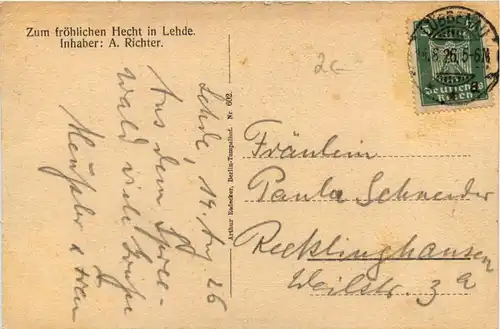 Zum fröhlichen Hecht in Lehde.
Inhaber: A. Richter.
Lehde, 19. Aug. 26
Aus dem Spree-
wald viele Grüße
Arthur Radecker, Berlin-Tempelhof. Nr 602.
2€
LÜBBENAU
26. 5-6N
Deutsches
Reich
Fräulein
Paula Schneider
Recklinghausen
Weilstr. 3a